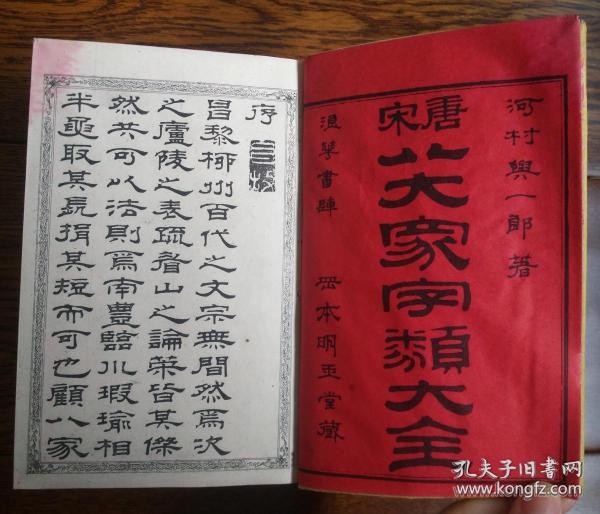 河村與一郎著
唐宋
八大家字類大全
浪華書肆 岡本明玉堂藏
序
昌黎柳州百代之文宗無間然焉次
之廬陵之表疏眉山之論策皆其傑
然共可以法則焉南豊臨川瑕瑜相
半亟取其長捐其短而可也顧八家
孔夫子旧书网
www.kongfz.com